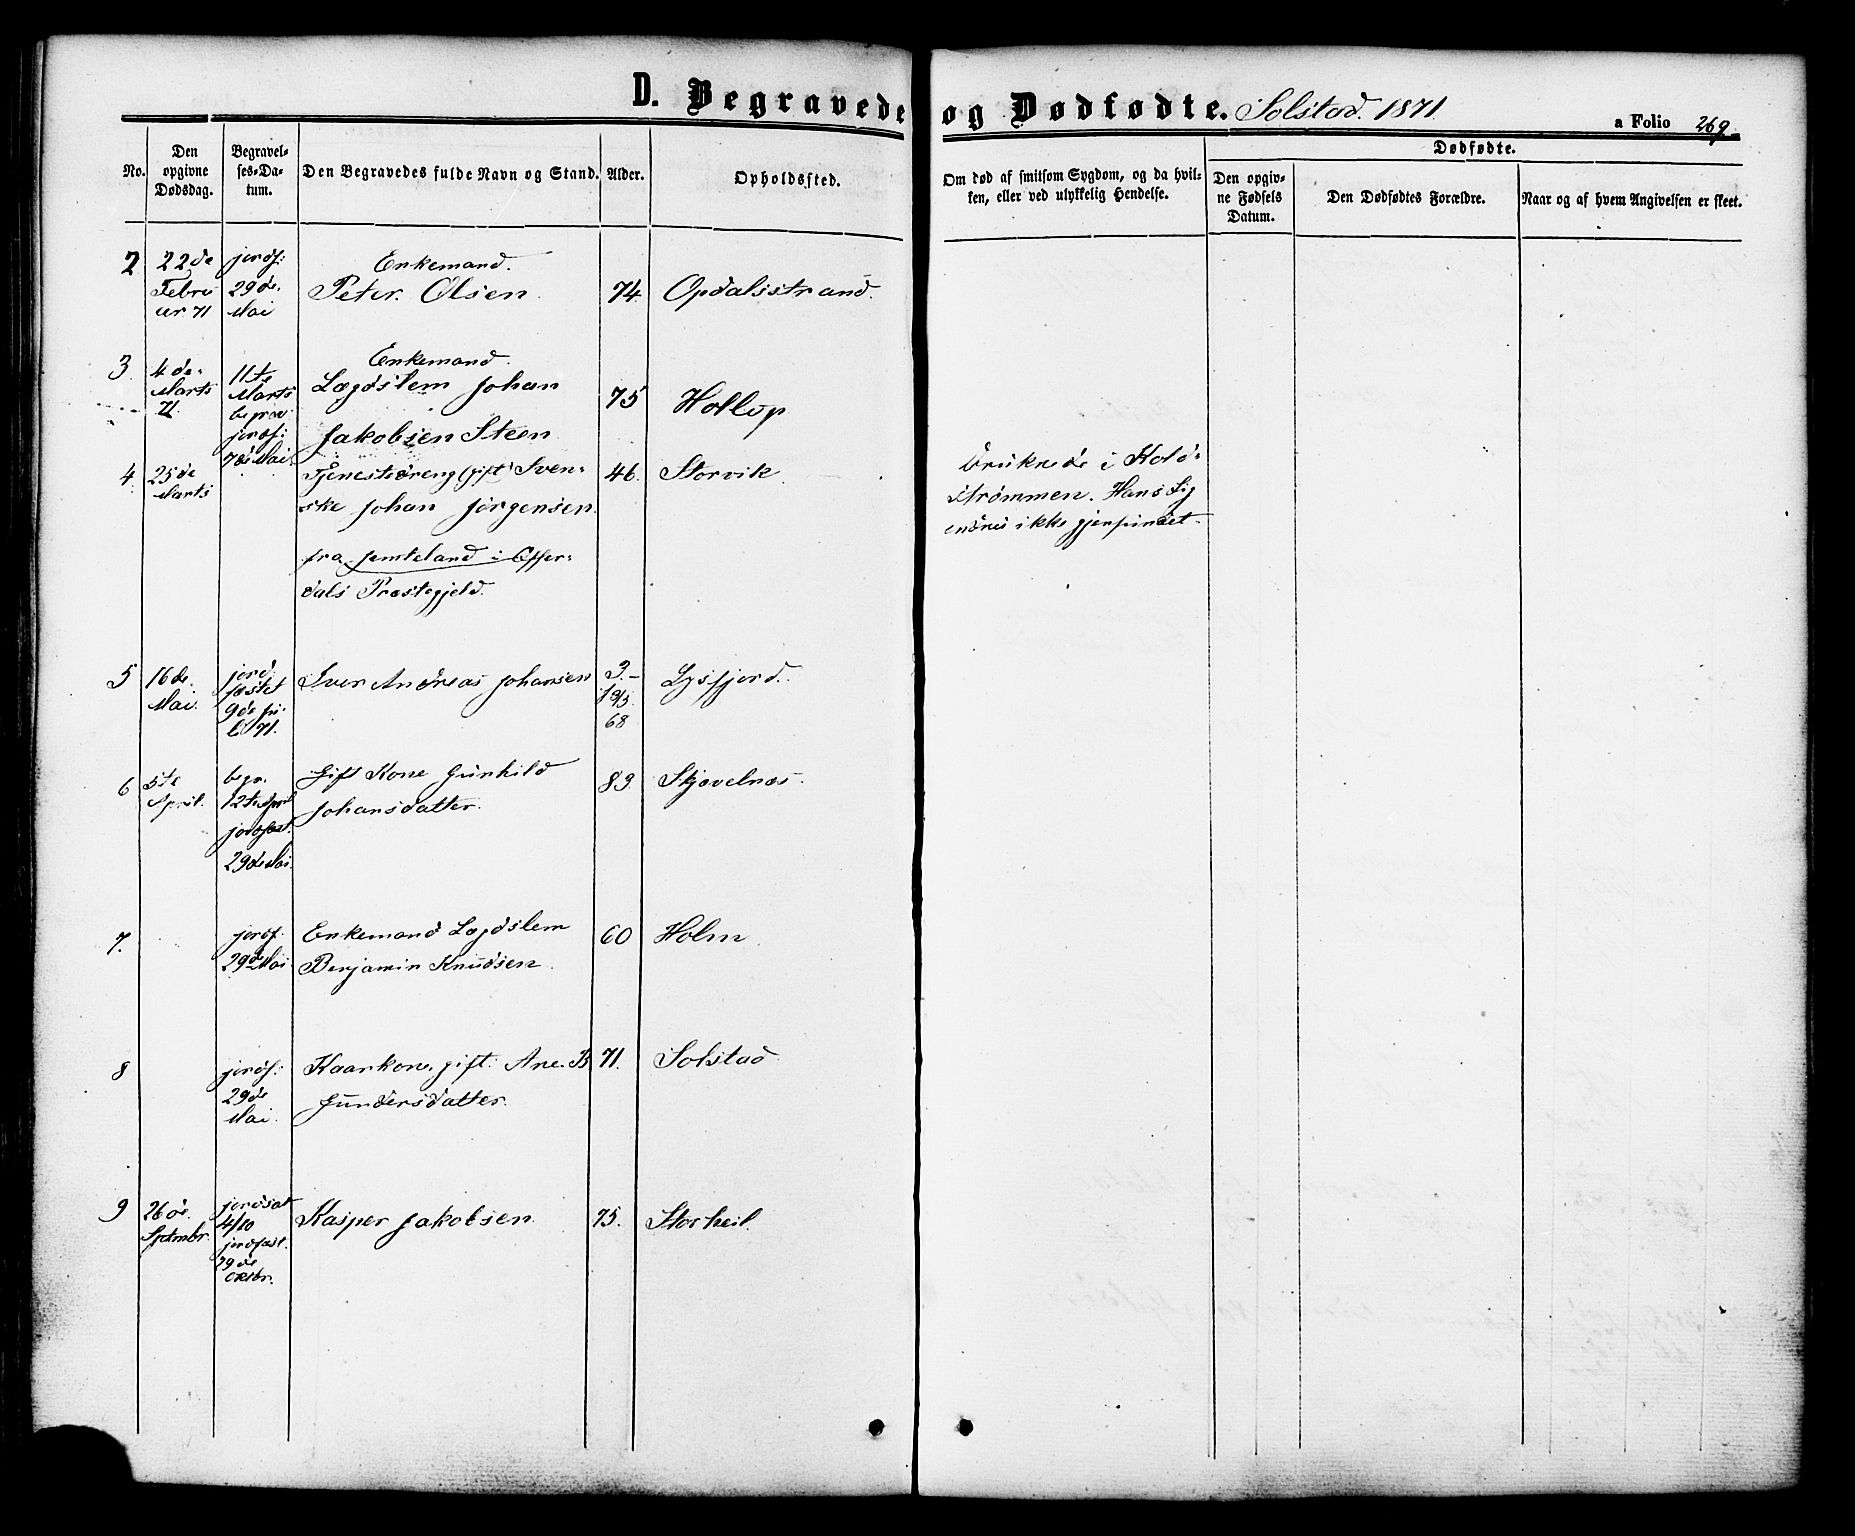 D. Begravede og Dødfødte. Solstad. 1871
a Folio 269.
No.
Den opgivne Dødsdag.
Begravel-
ses-Da-
tum.
Den Begravedes fulde Navn og Stand.
Alder.
Opholdssted.
Om død af smitsom Sygdom, og da hvil-
ken, eller ved ulykkelig Hendelse.
Dødfødte.
Den opgiv-
ne Fødsels
Datum.
Den Dødfødtes Forældre.
Naar og af hvem Angivelsen er skeet.
2
22de
Febru
ar 71
jordf:
29de
Mai
Enkemand.
Peter Olsen
74
Opdalsstrand.
3
4de
Marts
71
11te
Marts
begrav
jordf:
7de Mai
Enkemand.
Lægdslem Johan
Jakobsen Steen
75
Hollup
4
25de
Marts
Tjenestedreng (gift) Sven-
ske Johan Jørgensen
fra Jemteland i Offer-
dals Præstegjeld.
46.
Storvik
Druknede i Kold-
strømmen. Hans Lig
endnu ikke gjenfundet.
5
16de
Mai.
jord
fæstet
9de Ju-
li 71.
Iver Andreas Johansen
3.-
68
Lysfjord.
6
5te
April.
begr.
12te April
jordfæst.
29de Mai.
Gift Kone Gunhild
Johansdatter.
83
Skjævelnæs.
7.
jordf.
29de Mai.
Enkemand Lægdslem
Benjamin Knudsen.
60
Holm
8
jordf:
29de
Mai.
Kaarkone, gift. Ane. B.
Gundersdatter.
71.
Solstad
9
26de
Septmbr.
jordsat
4/10
jordfæst.
29de
Oktbr.
Kasper Jakobsen
75.
Storheil.